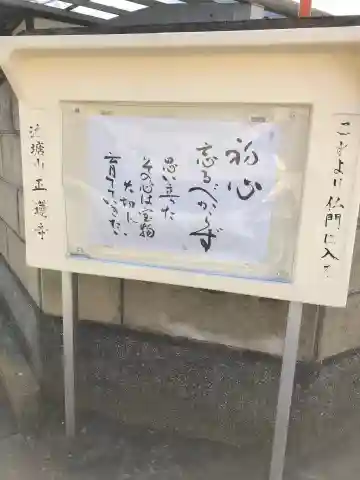 これより仏門に入る
初心
忘るべからず
思い立った
その心は宝物
大切に
育てていきたい
正蓮寺